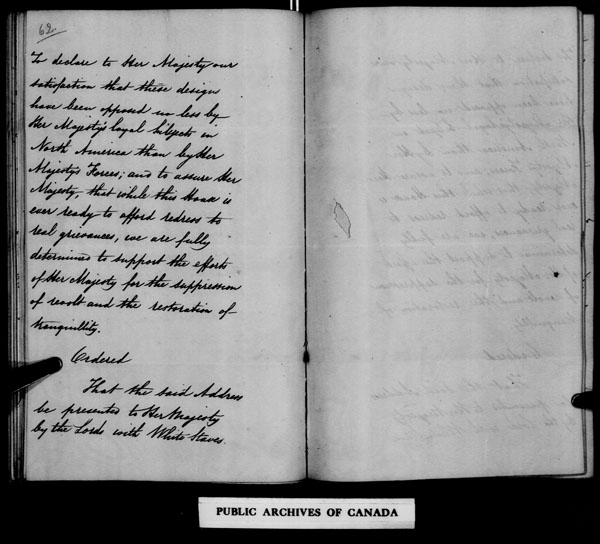 62.
To declare to Her Majesty our
satisfaction that these designs
have been opposed no less by
Her Majesty's loyal Subjects in
North America than by Her
Majesty's Forces; and to assure Her
Majesty, that while this House is
ever ready to afford redress to
real grievances, we are fully
determined to support the efforts
of Her Majesty for the suppression
of revolt and the restoration of
tranquillity.
Ordered
That the said Address
be presented to Her Majesty
by the Lords with White Staves.
PUBLIC ARCHIVES OF CANADA